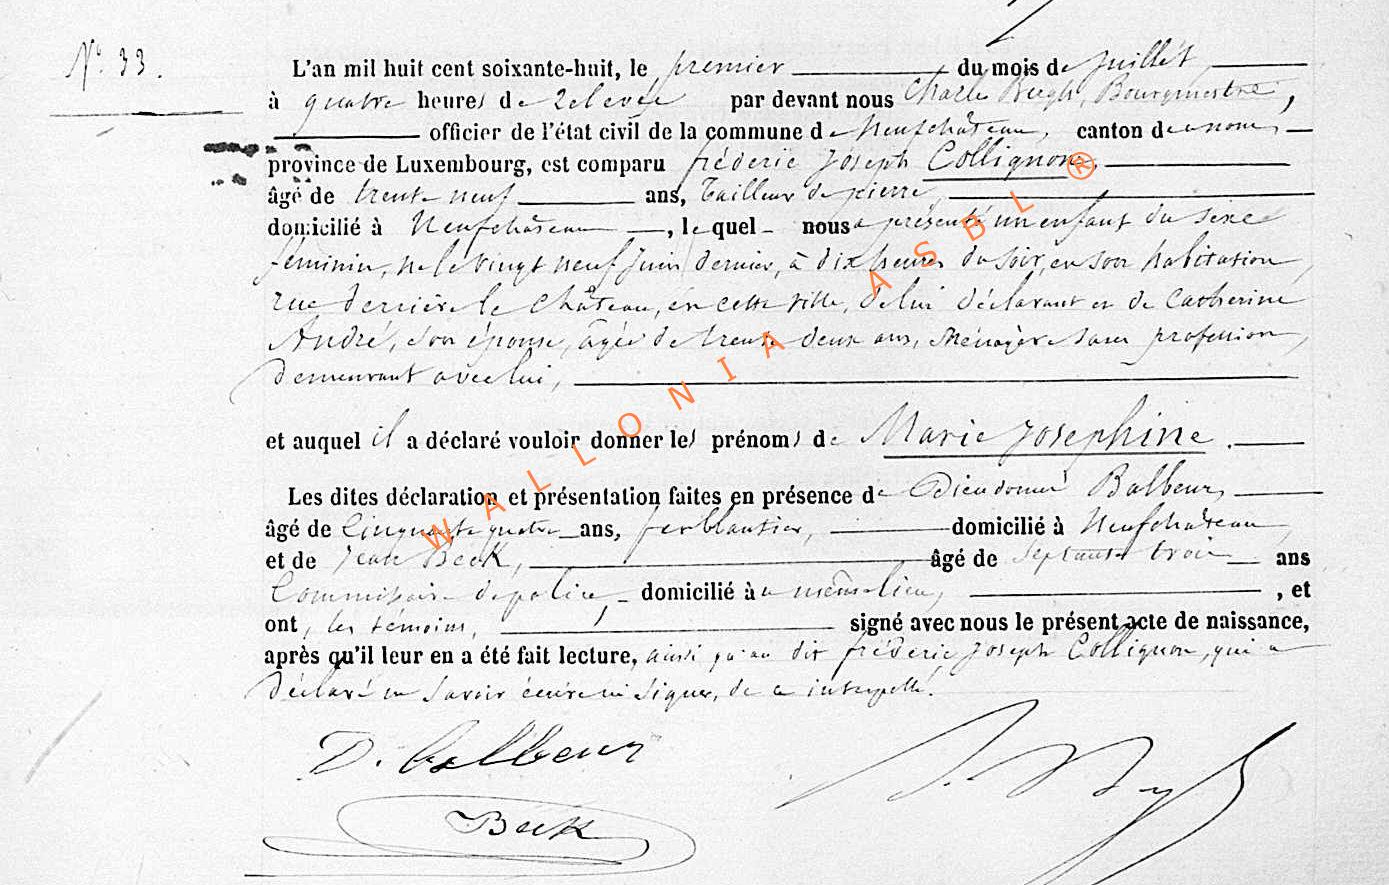 N° 33.
L'an mil huit cent soixante-huit, le premier du mois de juillet
à quatre heures de relevée par devant nous Charle Bergh, Bourgmestre,
officier de l'état civil de la commune de Neufchâteau, canton de
province de Luxembourg, est comparu frédéric Joseph Collignon,
âgé de trente neuf ans, Tailleur de pierre,
domicilié à Neufchâteau, lequel nous a présenté un enfant du sexe
féminin, né le vingt neuf juin dernier, à dix heures du soir, en son habitation
rue derrière le Château, en cette ville, de lui déclarant et de Catherine
André, son épouse, âgée de trente deux ans, Ménagère sans profession,
demeurant avec lui,
et auquel il a déclaré vouloir donner les prénoms de Marie Josephine.
Les dites déclaration et présentation faites en présence de Dieudonné Balbeur,
âgé de Cinquante quatre ans, ferblantier, domicilié à Neufchâteau,
et de Jean Beck, âgé de septante trois ans
Commissaire de police, domicilié à même lieu, , et
ont, les témoins, signé avec nous le présent acte de naissance,
après qu'il leur en a été fait lecture, ainsi qu'au dit frédéric Joseph Collignon, qui a
déclaré ne savoir écrire ni signer, de ce interpellé.
D. Balbeur
Beck
WALLONIA ASBL ®